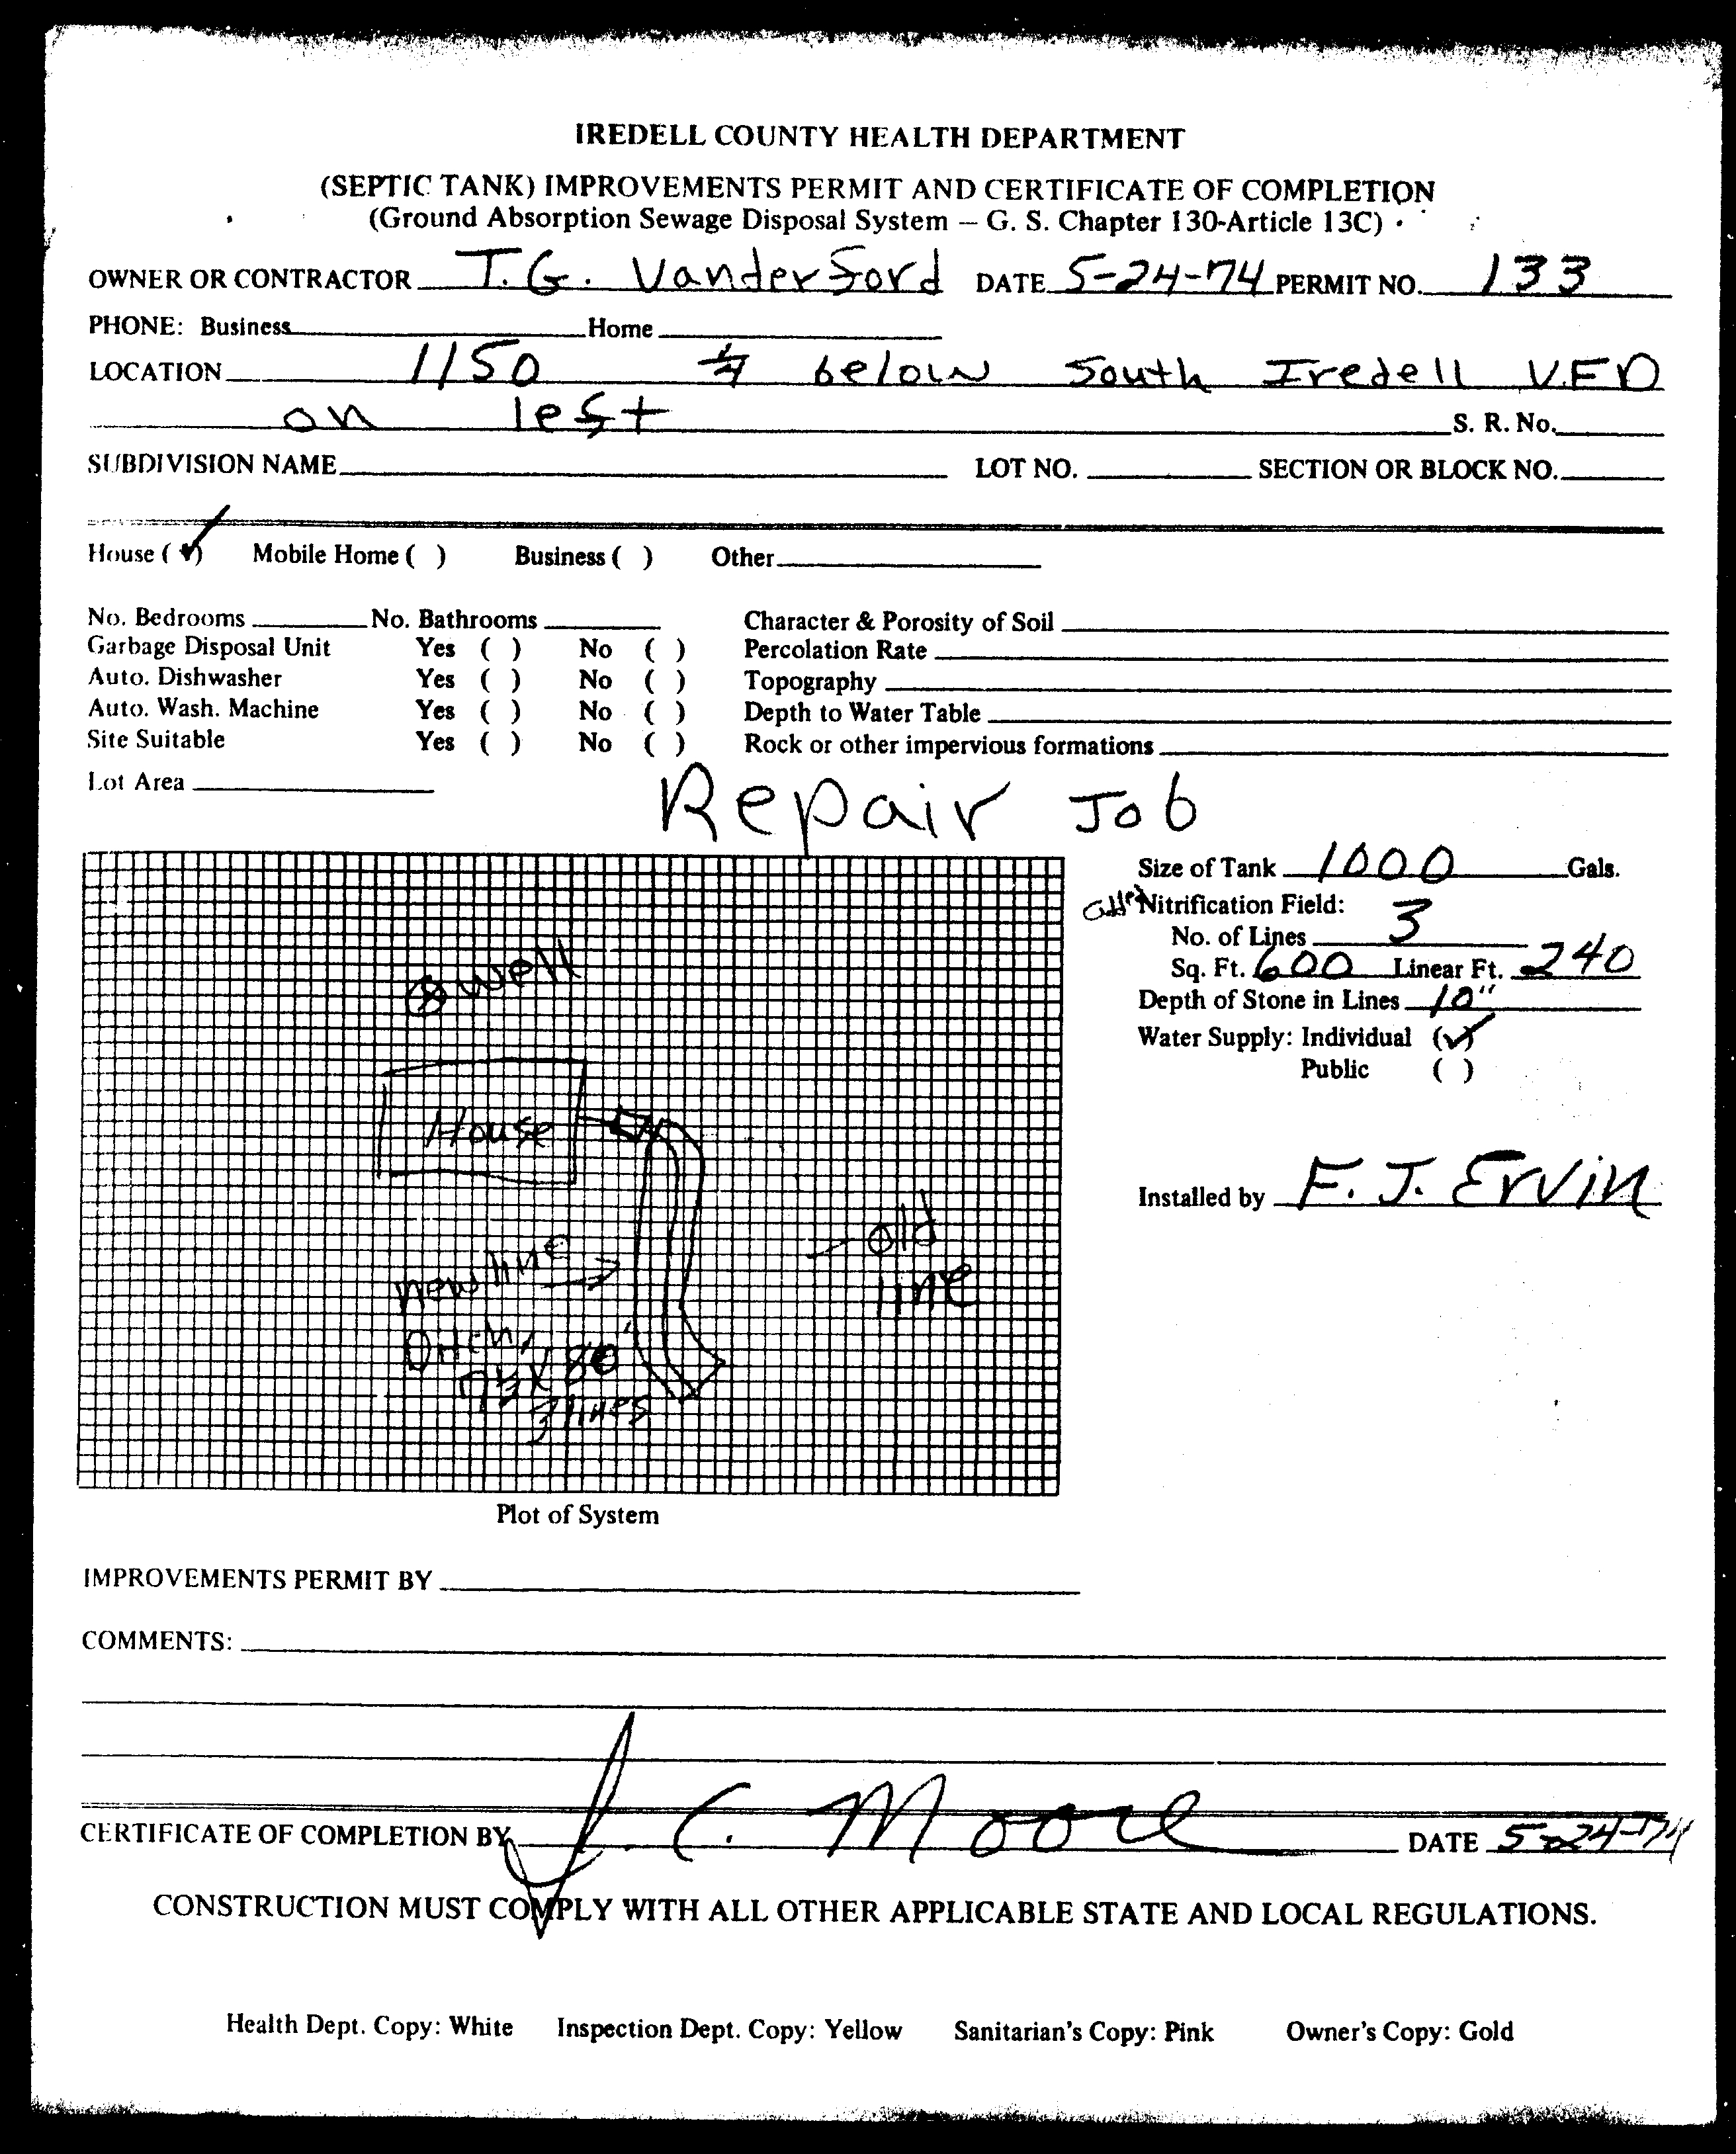 IREDELL COUNTY HEALTH DEPARTMENT
(SEPTIC TANK) IMPROVEMENTS PERMIT AND CERTIFICATE OF COMPLETION
(Ground Absorption Sewage Disposal System — G. S. Chapter 130-Article 13C)
OWNER OR CONTRACTOR T. G. Vanderford DATE 5-24-74 PERMIT NO. 133
PHONE: Business Home
LOCATION 1150 ¼ below South Iredell V.F.D
on left S. R. No.
SUBDIVISION NAME LOT NO. SECTION OR BLOCK NO.
House (✓) Mobile Home ( ) Business ( ) Other
No. Bedrooms No. Bathrooms Character & Porosity of Soil
Garbage Disposal Unit Yes ( ) No ( ) Percolation Rate
Auto. Dishwasher Yes ( ) No ( ) Topography
Auto. Wash. Machine Yes ( ) No ( ) Depth to Water Table
Site Suitable Yes ( ) No ( ) Rock or other impervious formations
Lot Area
Repair Job
Size of Tank 1000 Gals.
Nitrification Field:
No. of Lines 3
Sq. Ft. 600 Linear Ft. 240
Depth of Stone in Lines 10"
Water Supply: Individual (✓)
Public ( )
Installed by F. J. Ervin
well
House
old
line
new line
Ditch
80
3 lines
Plot of System
IMPROVEMENTS PERMIT BY
COMMENTS:
CERTIFICATE OF COMPLETION BY J. C. Moore DATE 5-24-74
CONSTRUCTION MUST COMPLY WITH ALL OTHER APPLICABLE STATE AND LOCAL REGULATIONS.
Health Dept. Copy: White Inspection Dept. Copy: Yellow Sanitarian's Copy: Pink Owner's Copy: Gold